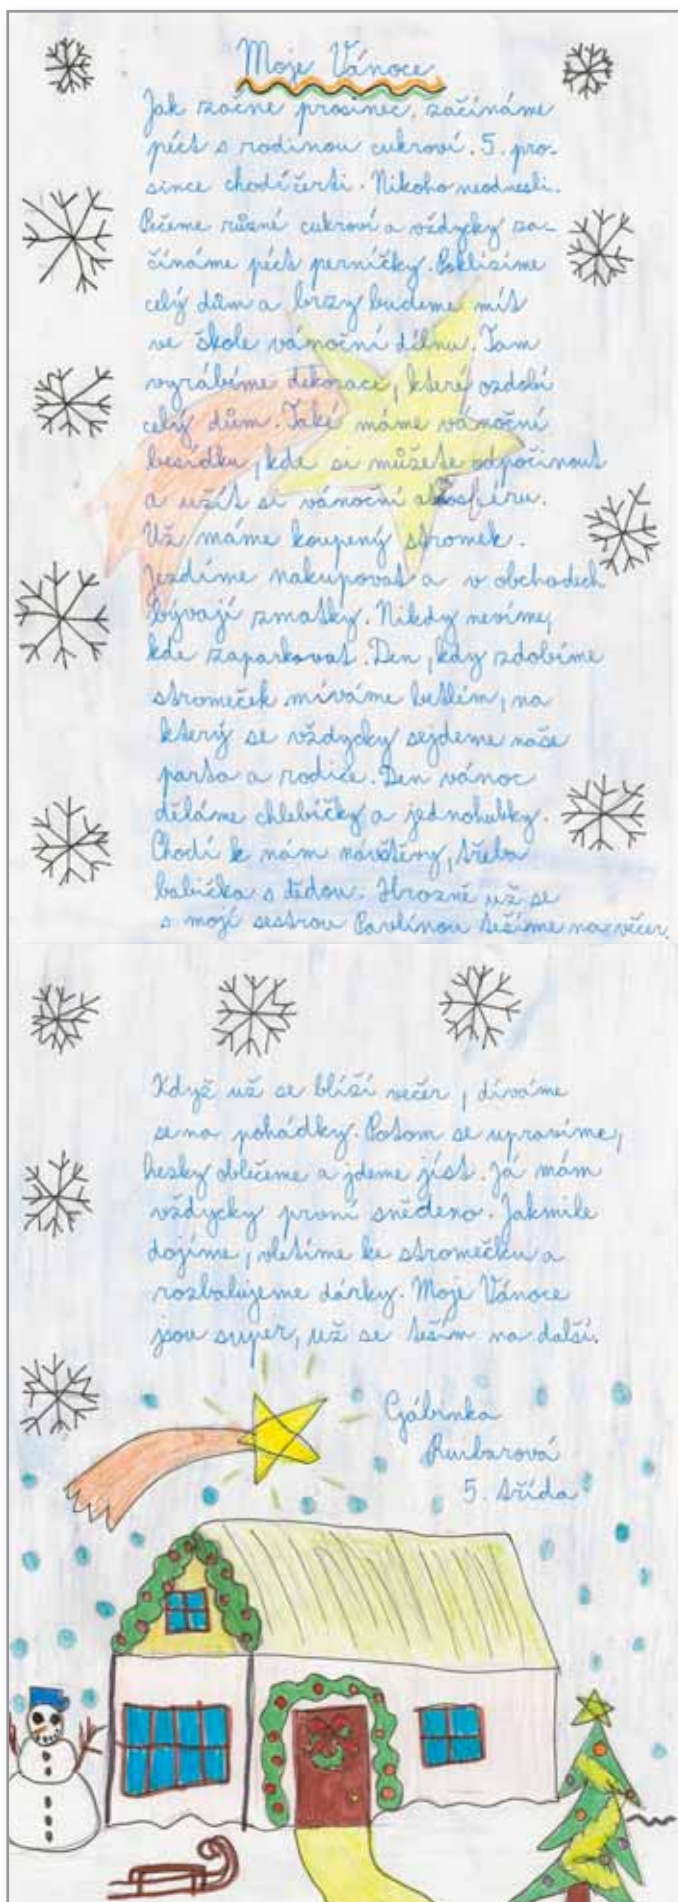 Moje Vánoce
Jak začne prosinec, začínáme
péct s rodinou cukroví. 5. pro-
since chodí čerti. Nikoho neodnesli.
Pečeme různé cukroví a vždycky za-
čínáme péct perníčky. Poklízíme
celý dům a brzy budeme mít
ve škole vánoční dílnu. Tam
vyrábíme dekorace, které ozdobí
celý dům. Také máme vánoční
besídku, kde si můžete odpočinout
a užít si vánoční atmosféru.
Už máme koupený stromek.
Jezdíme nakupovat a v obchodech
bývají zmatky. Nikdy nevíme,
kde zaparkovat. Den, kdy zdobíme
stromeček míváme betlém, na
který se vždycky sejdeme naše
parta a rodiče. Den vánoc
děláme chlebíčky a jednohubky.
Chodí k nám návštěvy, třeba
babička s dědou. Hrozně už se
s mojí sestrou Pavlínou těšíme na večer.
Když už se blíží večer, díváme
se na pohádky. Potom se upravíme,
hezky oblečeme a jdeme jíst. Já mám
vždycky první snědeno. Jakmile
dojíme, vletíme ke stromečku a
rozbalujeme dárky. Moje Vánoce
jsou super, už se těším na další.
Gábinka
5. třída